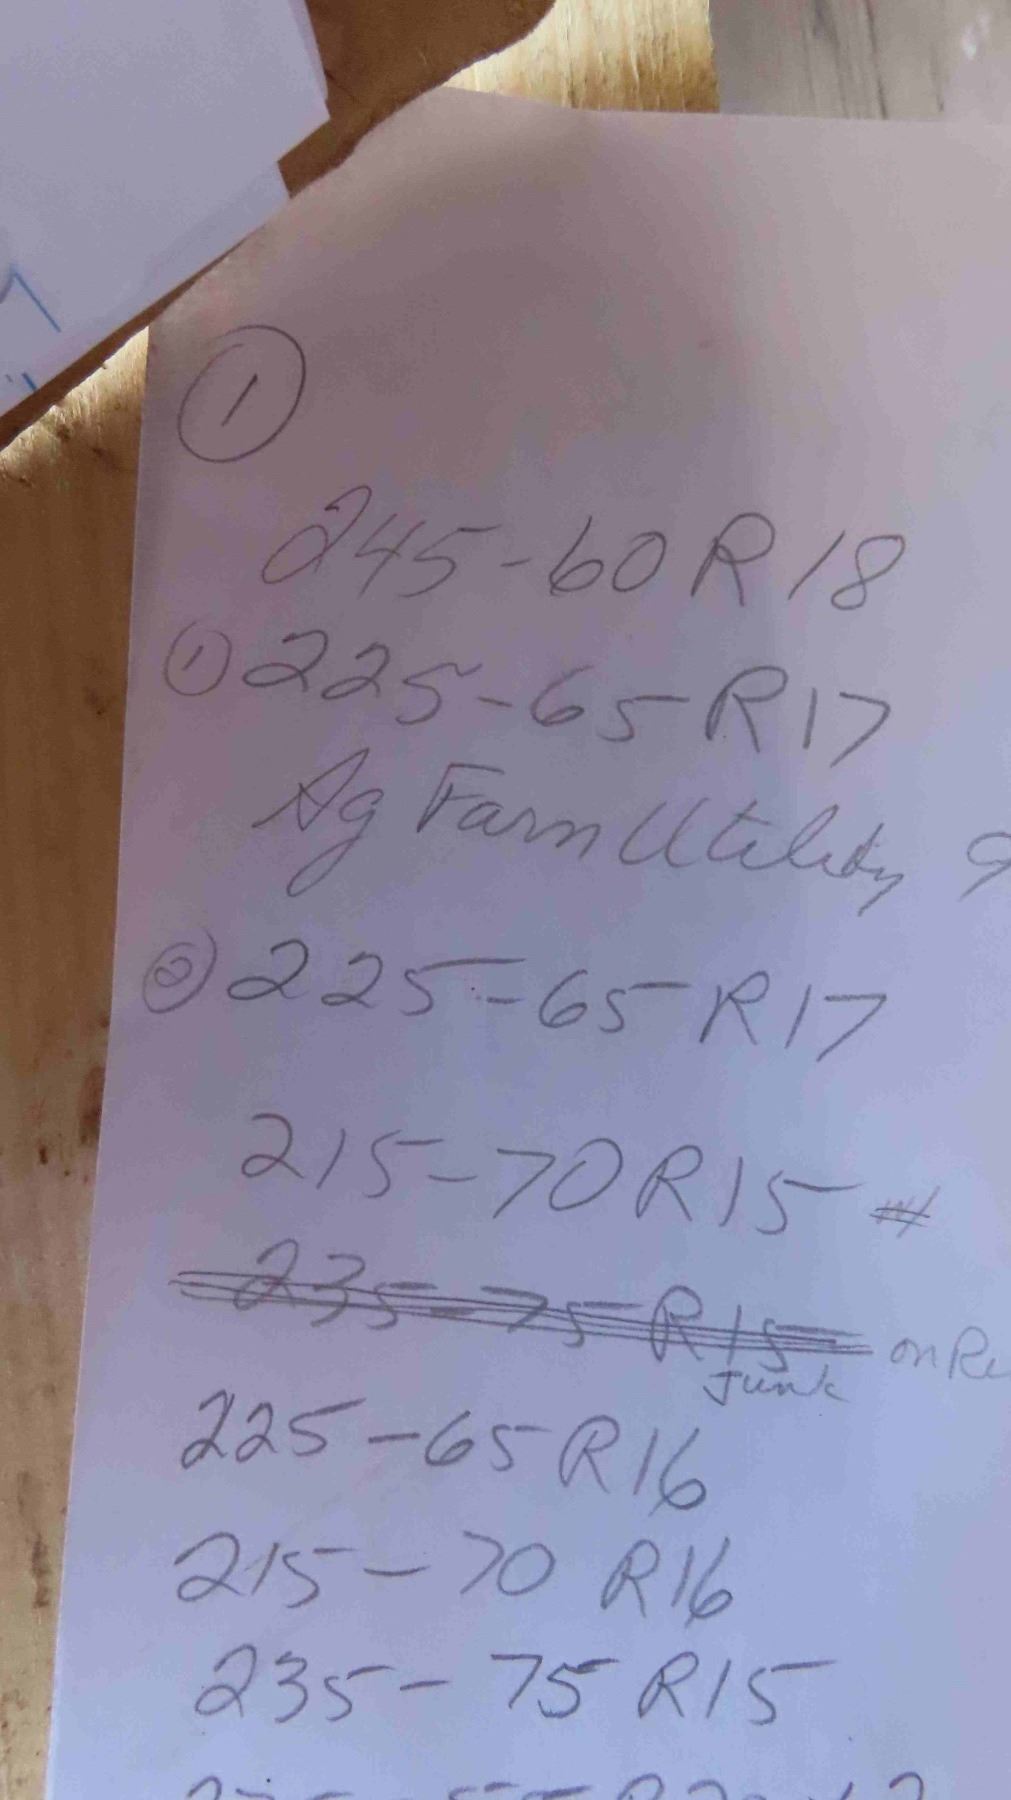 ①
245-60 R 18
① 225-65-R17
Ag Farm Utility
② 225-65-R17
215-70 R15
235-75-R15 on
Junk
225-65 R16
215-70 R16
235-75 R15